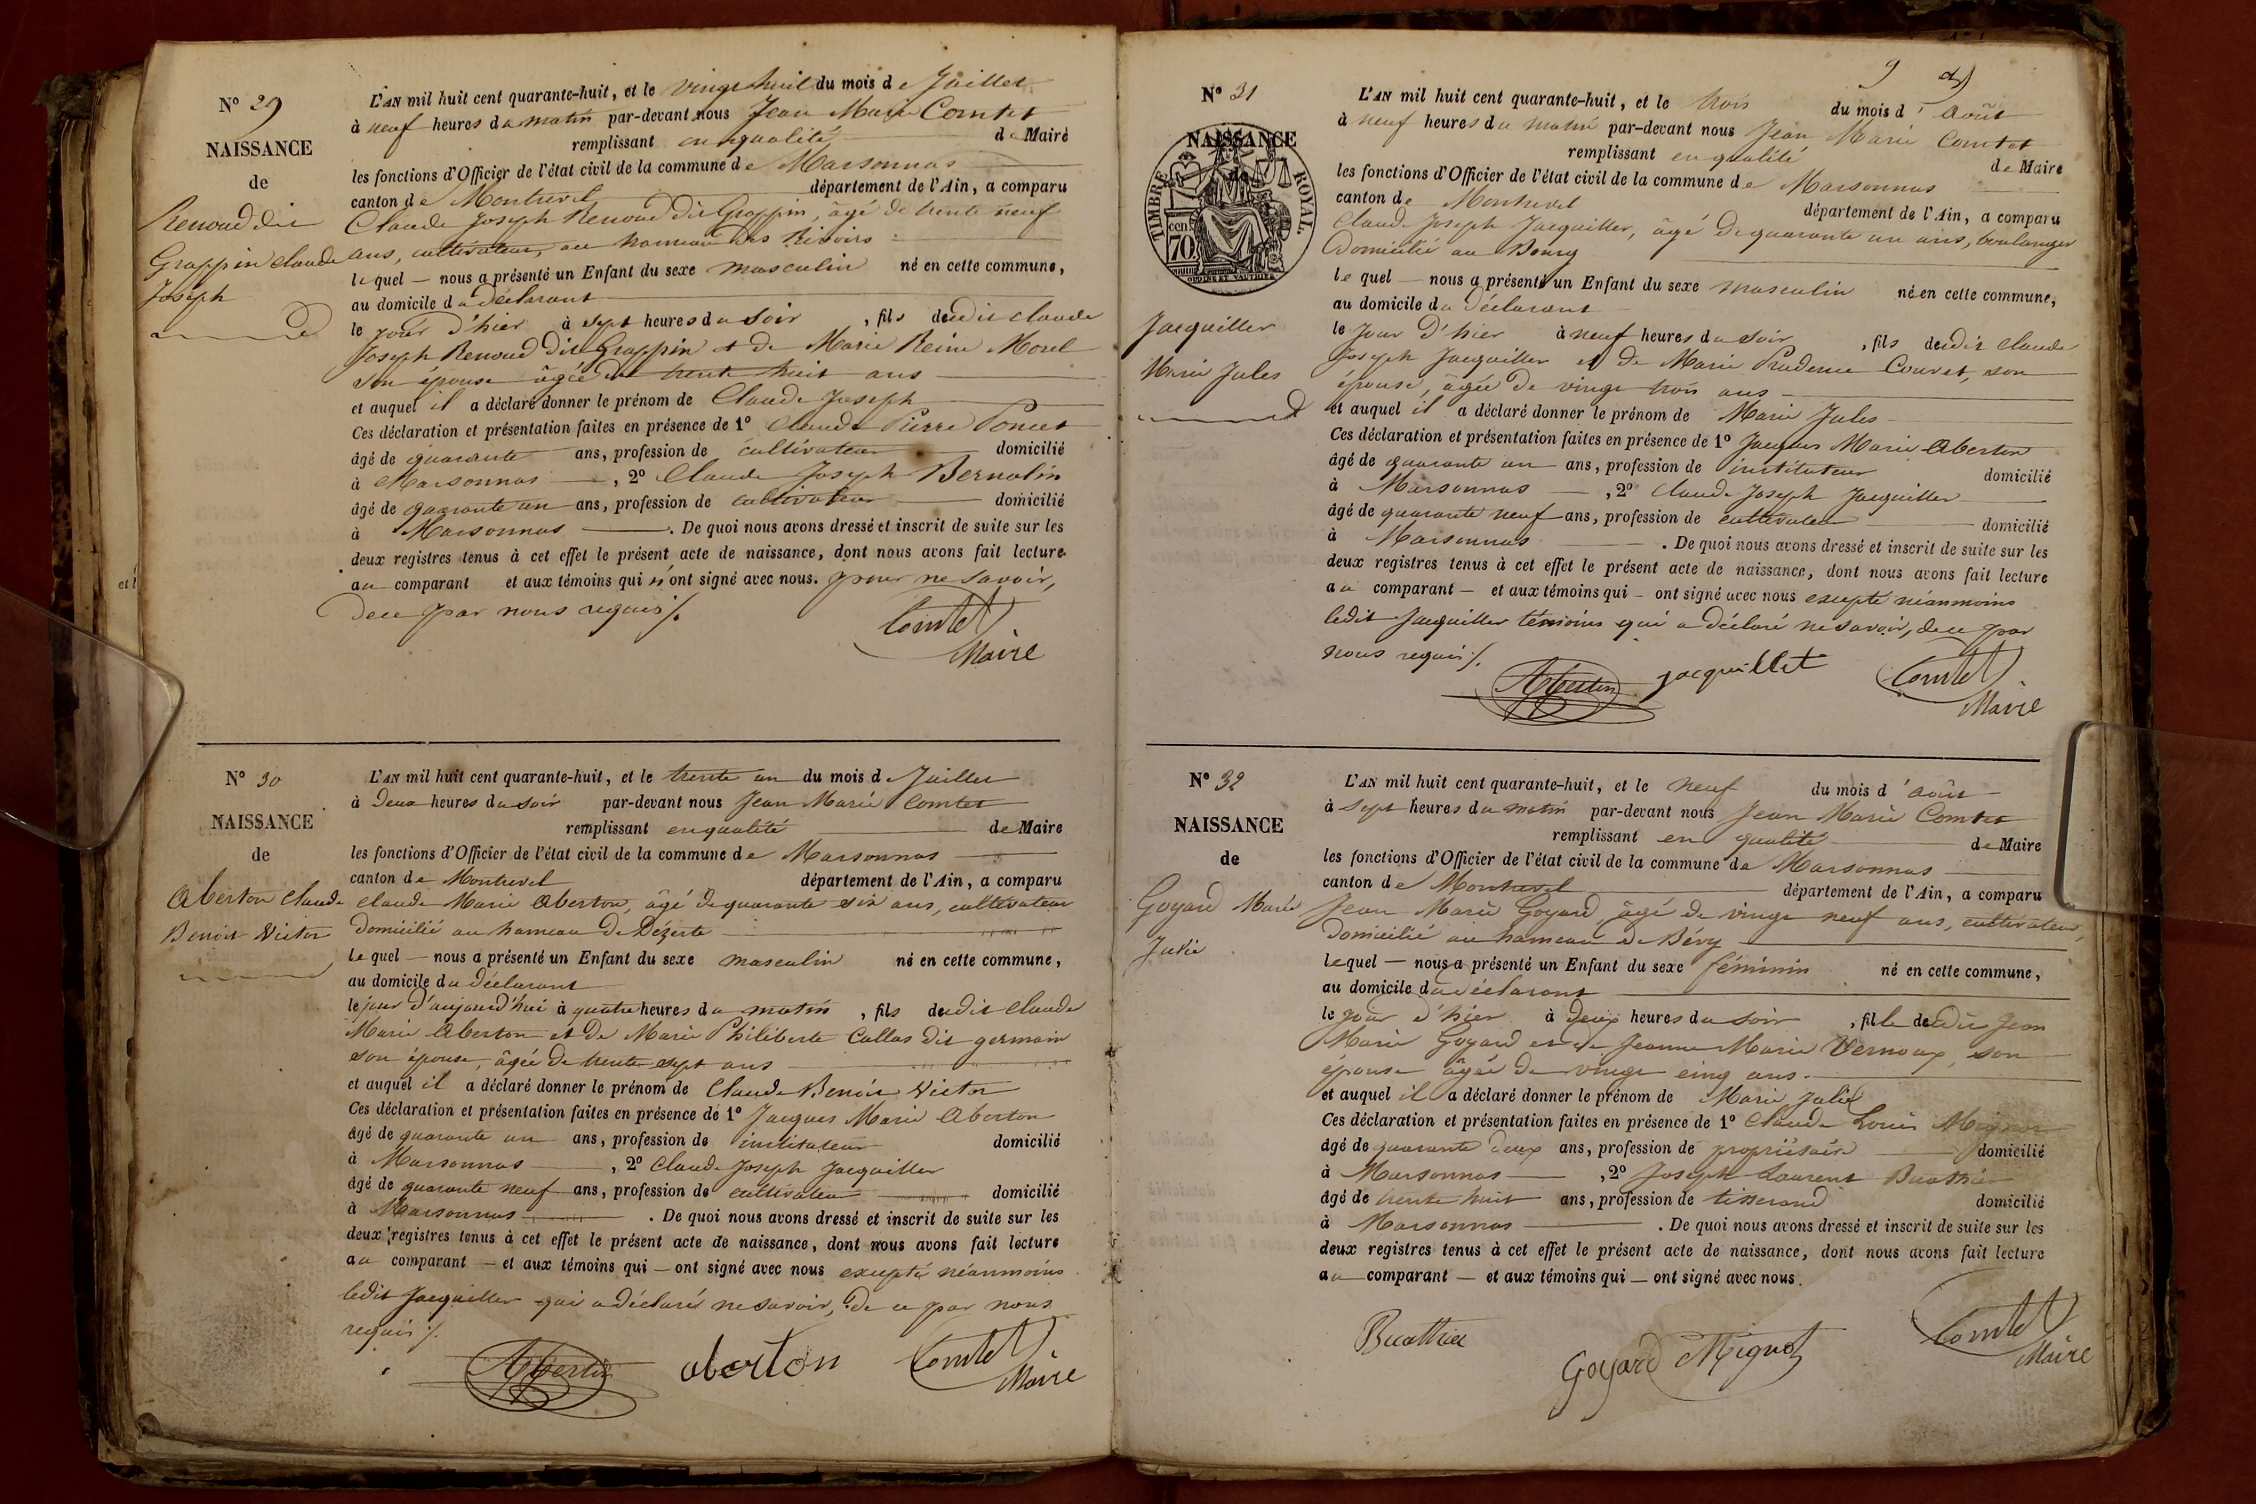 N° 29
NAISSANCE
de
Renoud dit
Grappin Claude
Joseph
L'AN mil huit cent quarante-huit, et le vingt huit du mois de Juillet
à neuf heures du matin par-devant nous Jean Marie Comtet
remplissant en qualité de Maire
les fonctions d'Officier de l'état civil de la commune de Marsonnas
canton de Montrevel département de l'Ain, a comparu
Claude Joseph Renoud dit Grappin, âgé de trente neuf
ans, cultivateur, au hameau des Rivoirs
lequel — nous a présenté un Enfant du sexe masculin né en cette commune,
au domicile du déclarant
le jour d'hier à sept heures du soir, fils dudit Claude
Joseph Renoud dit Grappin et de Marie Reine Morel
son épouse âgée de trente huit ans
et auquel il a déclaré donner le prénom de Claude Joseph
Ces déclaration et présentation faites en présence de 1° Claude Pierre Poncet
âgé de quarante ans, profession de cultivateur domicilié
à Marsonnas, 2° Claude Joseph Bernolin
âgé de quarante un ans, profession de cultivateur domicilié
à Marsonnas. De quoi nous avons dressé et inscrit de suite sur les
deux registres tenus à cet effet le présent acte de naissance, dont nous avons fait lecture
au comparant et aux témoins qui n'ont signé avec nous. pour ne savoir,
de ce par nous requis /.
Comtet
Maire
N° 30
NAISSANCE
de
Aberton Claude
Benoit Victor
L'AN mil huit cent quarante-huit, et le trente un du mois de Juillet
à deux heures du soir par-devant nous Jean Marie Comtet
remplissant en qualité de Maire
les fonctions d'Officier de l'état civil de la commune de Marsonnas
canton de Montrevel département de l'Ain, a comparu
Claude Marie Aberton, âgé de quarante six ans, cultivateur
domicilié au hameau de Dézerte
lequel — nous a présenté un Enfant du sexe masculin né en cette commune,
au domicile du déclarant
le jour d'aujourd'hui à quatre heures du matin, fils dudit Claude
Marie Aberton et de Marie Philiberte Callas dit germain
son épouse, âgée de trente sept ans
et auquel il a déclaré donner le prénom de Claude Benoit Victor
Ces déclaration et présentation faites en présence de 1° Jacques Marie Aberton
âgé de quarante un ans, profession de instituteur domicilié
à Marsonnas, 2° Claude Joseph Jacquiller
âgé de quarante neuf ans, profession de cultivateur domicilié
à Marsonnas. De quoi nous avons dressé et inscrit de suite sur les
deux registres tenus à cet effet le présent acte de naissance, dont nous avons fait lecture
au comparant — et aux témoins qui — ont signé avec nous excepté néanmoins
ledit Jacquiller qui a déclaré ne savoir, de ce par nous
requis /.
Aberton aberton Comtet
Maire
9
N° 31
NAISSANCE
TIMBRE ROYAL
70 cen
Jacquiller
Marie Jules
L'AN mil huit cent quarante-huit, et le trois du mois d'Août
à neuf heures du matin par-devant nous Jean Marie Comtet
remplissant en qualité de Maire
les fonctions d'Officier de l'état civil de la commune de Marsonnas
canton de Montrevel département de l'Ain, a comparu
Claude Joseph Jacquiller, âgé de quarante un ans, boulanger
domicilié au Bourg
lequel — nous a présenté un Enfant du sexe masculin né en cette commune,
au domicile du déclarant
le Jour d'hier à neuf heures du soir, fils dudit Claude
Joseph Jacquiller et de Marie Prudence Couvet, son
épouse, âgée de vingt trois ans
et auquel il a déclaré donner le prénom de Marie Jules
Ces déclaration et présentation faites en présence de 1° Jacques Marie Aberton
âgé de quarante un ans, profession de instituteur domicilié
à Marsonnas, 2° Claude Joseph Jacquiller
âgé de quarante neuf ans, profession de cultivateur domicilié
à Marsonnas. De quoi nous avons dressé et inscrit de suite sur les
deux registres tenus à cet effet le présent acte de naissance, dont nous avons fait lecture
au comparant — et aux témoins qui — ont signé avec nous excepté néanmoins
ledit Jacquiller témoins qui a déclaré ne savoir, de ce par
nous requis /.
Aberton jacquillet Comtet
Maire
N° 32
NAISSANCE
de
Goyard Marie
Julie
L'AN mil huit cent quarante-huit, et le neuf du mois d'août
à sept heures du matin par-devant nous Jean Marie Comtet
remplissant en qualité de Maire
les fonctions d'Officier de l'état civil de la commune de Marsonnas
canton de Montrevel département de l'Ain, a comparu
Jean Marie Goyard, âgé de vingt neuf ans, cultivateur,
domicilié au hameau de Bévy
lequel — nous a présenté un Enfant du sexe féminin né en cette commune,
au domicile du déclarant
le jour d'hier à deux heures du soir, fille dudit Jean
Marie Goyard et de Jeanne Marie Vernoux, son
épouse âgée de vingt cinq ans.
et auquel il a déclaré donner le prénom de Marie Julie
Ces déclaration et présentation faites en présence de 1° Claude Louis Mignot
âgé de quarante deux ans, profession de propriétaire domicilié
à Marsonnas, 2° Joseph Laurent Buathier
âgé de trente huit ans, profession de tisserand domicilié
à Marsonnas. De quoi nous avons dressé et inscrit de suite sur les
deux registres tenus à cet effet le présent acte de naissance, dont nous avons fait lecture
au comparant — et aux témoins qui — ont signé avec nous.
Buathier Goyard Mignot Comtet
Maire